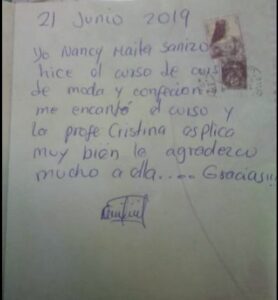 21 Junio 2019
Yo Nancy Maita Sanizo
hice el curso de curs
de moda y confecion
me encantó el curso y
la profe Cristina esplica
muy bien le agradezco
mucho a ella.... Gracias!!!